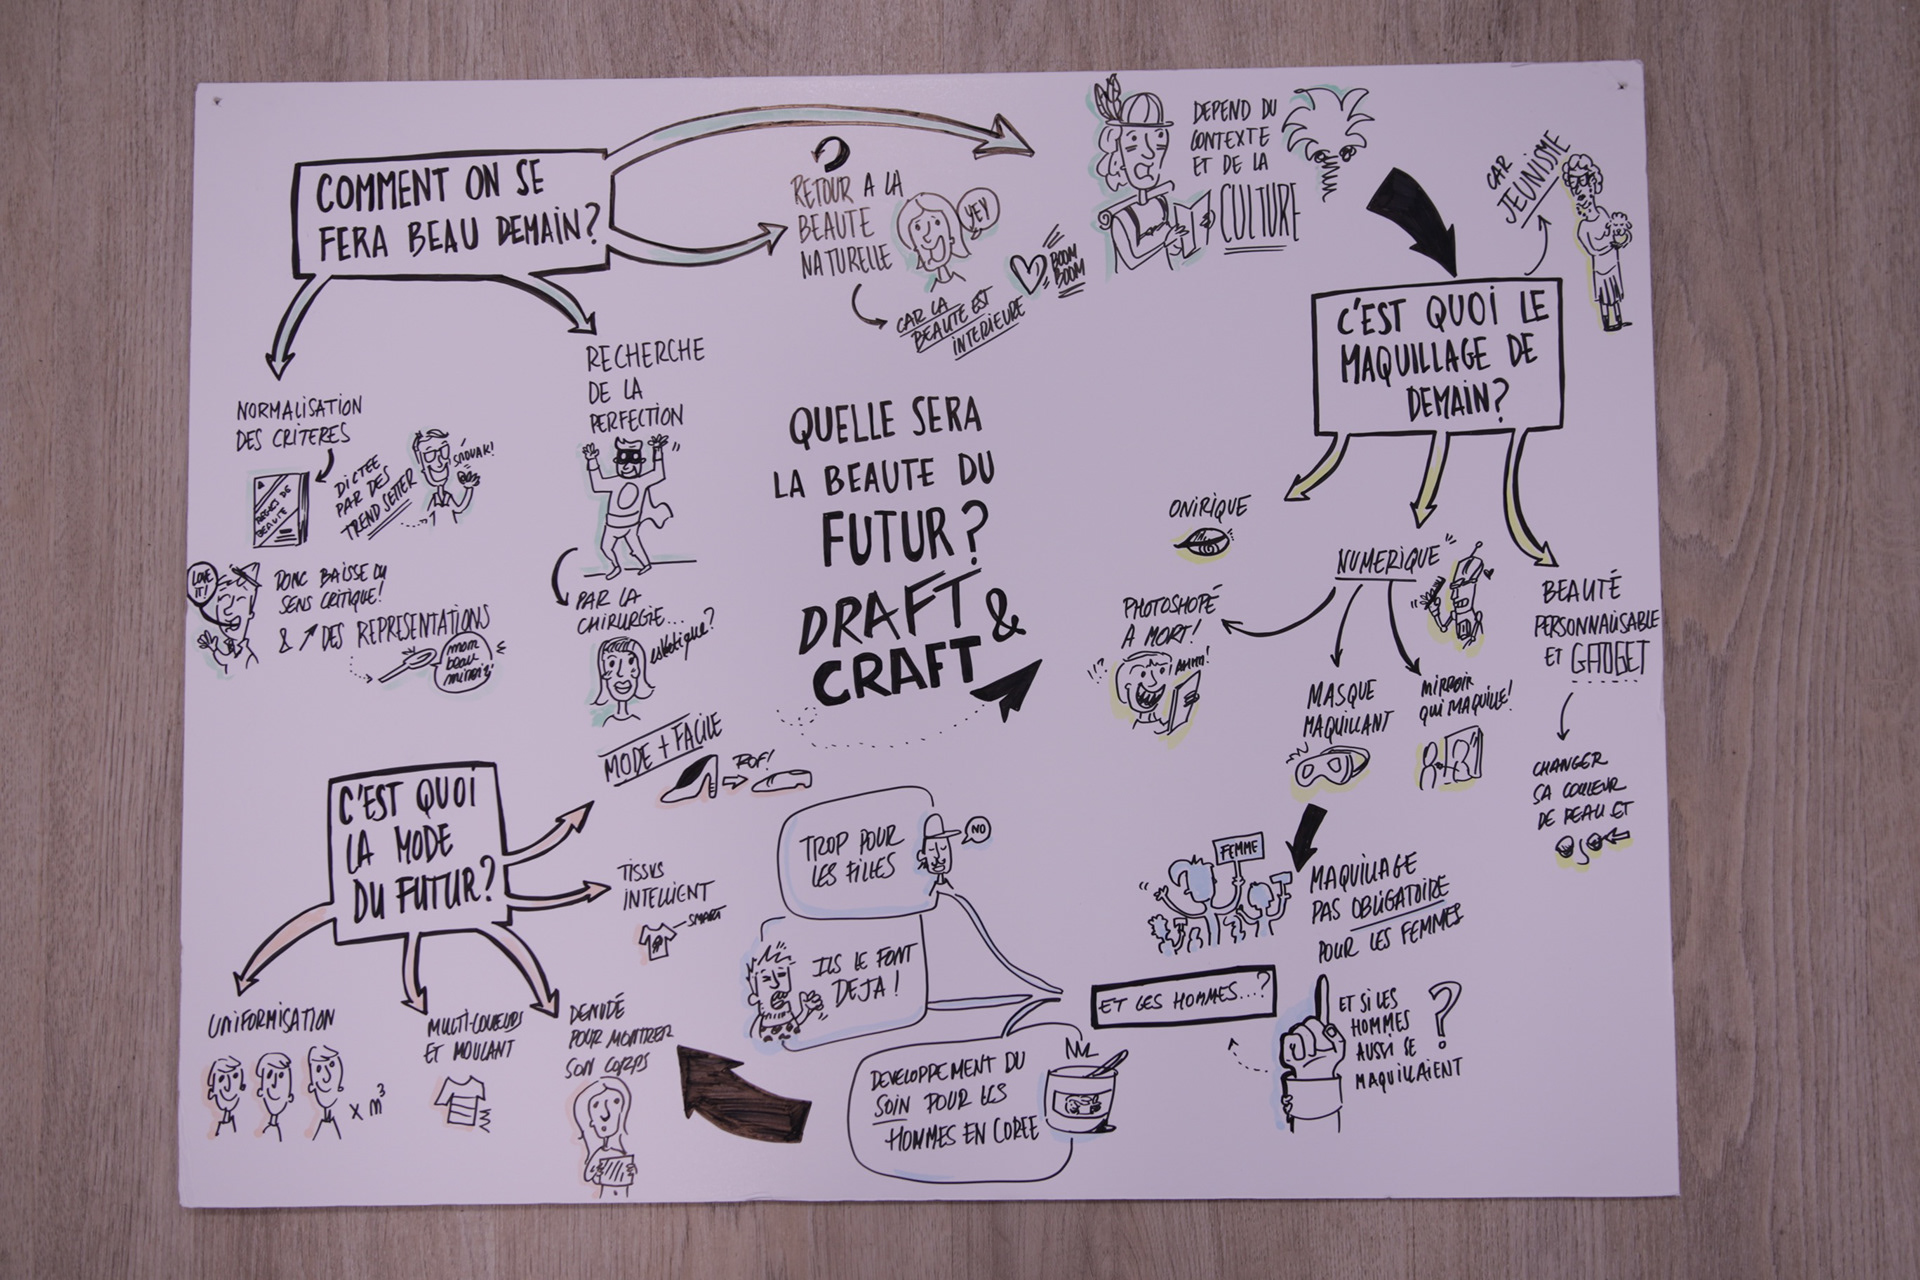 COMMENT ON SE
FERA BEAU DEMAIN?
RETOUR A LA
BEAUTE
NATURELLE
YEY
CAR LA
BEAUTE EST
INTERIEURE
BOOM
BOOM
DEPEND DU
CONTEXTE
ET DE LA
CULTURE
CAR
JEUNISME
C'EST QUOI LE
MAQUILLAGE DE
DEMAIN?
NORMALISATION
DES CRITERES
BEAUTE
DICTEE
PAR DES
TREND SETTER
LOVE
IT!
DONC BAISSE DU
SENS CRITIQUE!
& ↗ DES REPRESENTATIONS
mom
beau
RECHERCHE
DE LA
PERFECTION
PAR LA
CHIRURGIE...
esthetique?
QUELLE SERA
LA BEAUTE DU
FUTUR?
DRAFT &
CRAFT
ONIRIQUE
NUMERIQUE
PHOTOSHOPÉ
A MORT!
AHHH!
MASQUE
MAQUILLANT
MIRROIR
QUI MAQUILLE!
BEAUTÉ
PERSONNALISABLE
ET GADGET
CHANGER
SA COULEUR
DE PEAU ET
C'EST QUOI
LA MODE
DU FUTUR?
MODE + FACILE
TISSUS
INTELLIENT
SMART
UNIFORMISATION
x m³
MULTI-COUEURS
ET MOULANT
DENUDÉ
POUR MONTRER
SON CORPS
TROP POUR
LES FILLES
NO
ILS LE FONT
DEJA!
DEVELOPPEMENT DU
SOIN POUR LES
HOMMES EN COREE
ET LES HOMMES...?
FEMME
MAQUILLAGE
PAS OBLIGATOIRE
POUR LES FEMMES
ET SI LES
HOMMES
AUSSI SE
MAQUILLAIENT
?